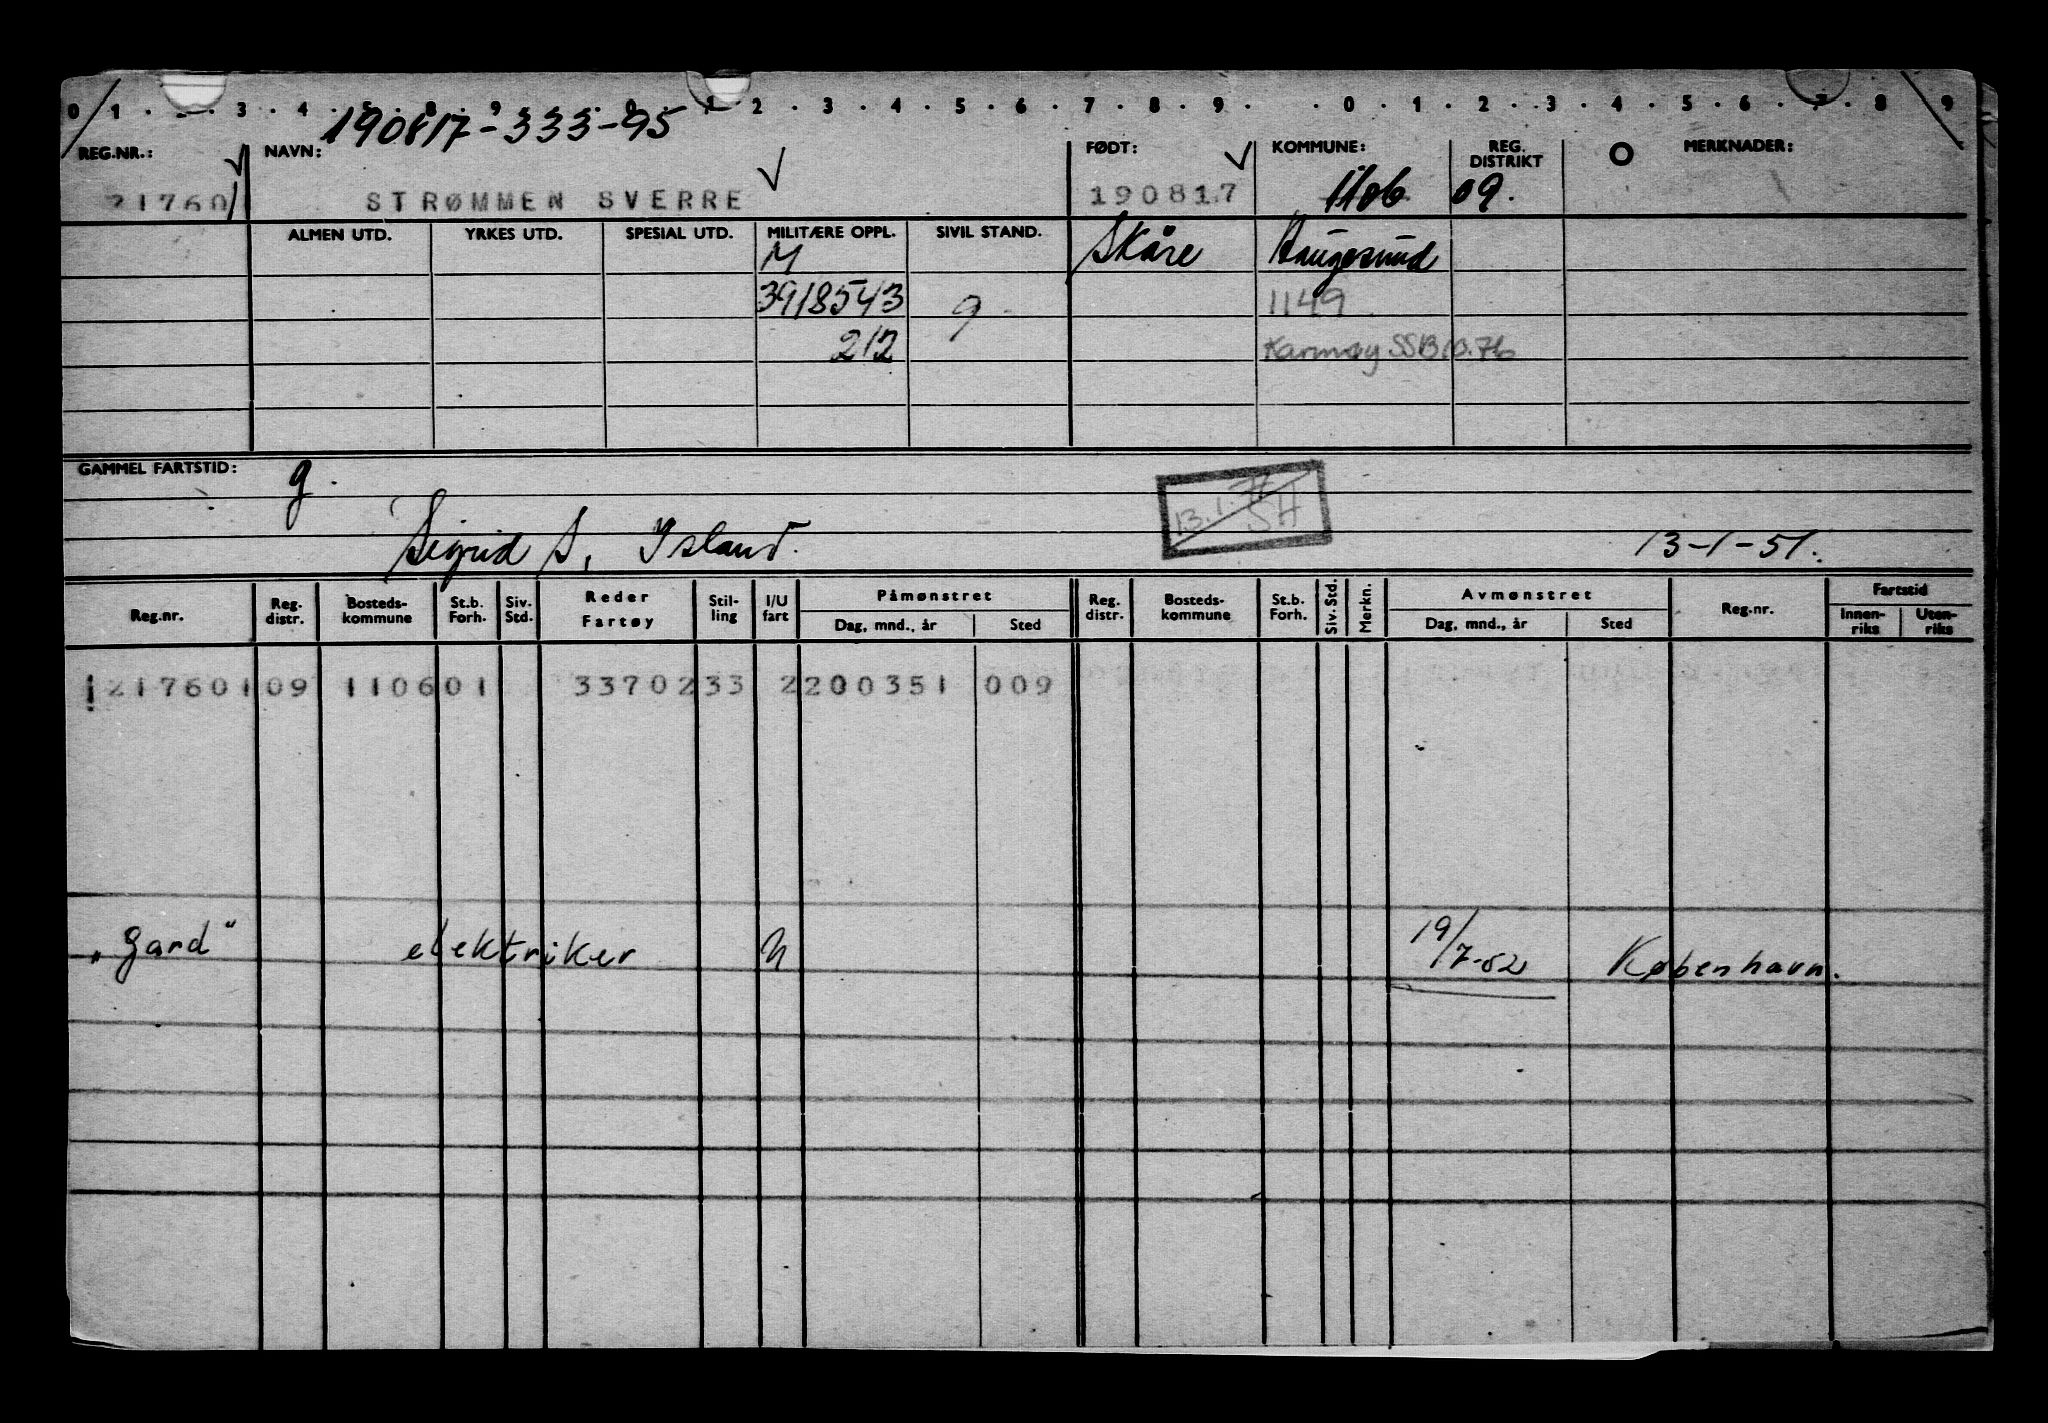 0 1 . . 3 . 4 . 5 . 8 . 9 . . 0 . 1 . 2 . 3 . 4 . 5 . 6 . 7 . 8 . 9 . . 0 . 1 . 2 . . 3 . 4 . 5 . 6 . 7 . 8 . 9
190817-333-95
REG.NR.: NAVN: FØDT: KOMMUNE: REG. DISTRIKT MERKNADER:
217601 STRØMMEN SVERRE 190817 1106 09.
ALMEN UTD. YRKES UTD. SPESIAL UTD. MILITÆRE OPPL. SIVIL STAND. Skåre Haugesund
M
3918543 g 1149
212 Karmøy SSB 10.76
GAMMEL FARTSTID: g.
13.1.77 SH
Sigrid S, Island. 13-1-51.
Reg.nr. Reg. distr. Bosteds-kommune St.b. Forh. Siv. Std. Reder Fartøy Stil-ling I/U fart Påmønstret Dag, mnd., år Sted Reg. distr. Bosteds-kommune St.b. Forh. Siv. Std. Merkn. Avmønstret Dag, mnd., år Sted Reg.nr. Fartstid Innen-riks Uten-riks
217601 09 1106 01 33702 33 2 200351 009
"Gard" elektriker U 19/7-52 København.